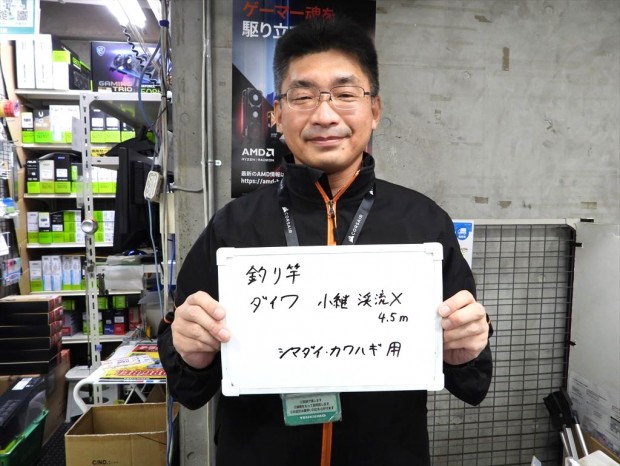 ゲーマー魂を
駆り立
AMD
RYZEN RADEON
最新のAMD情報は
https://amd-
GAMING
TRIO
CORSAIR
釣り竿
ダイワ 小継 渓流X
4.5m
シマダイ・カワハギ用